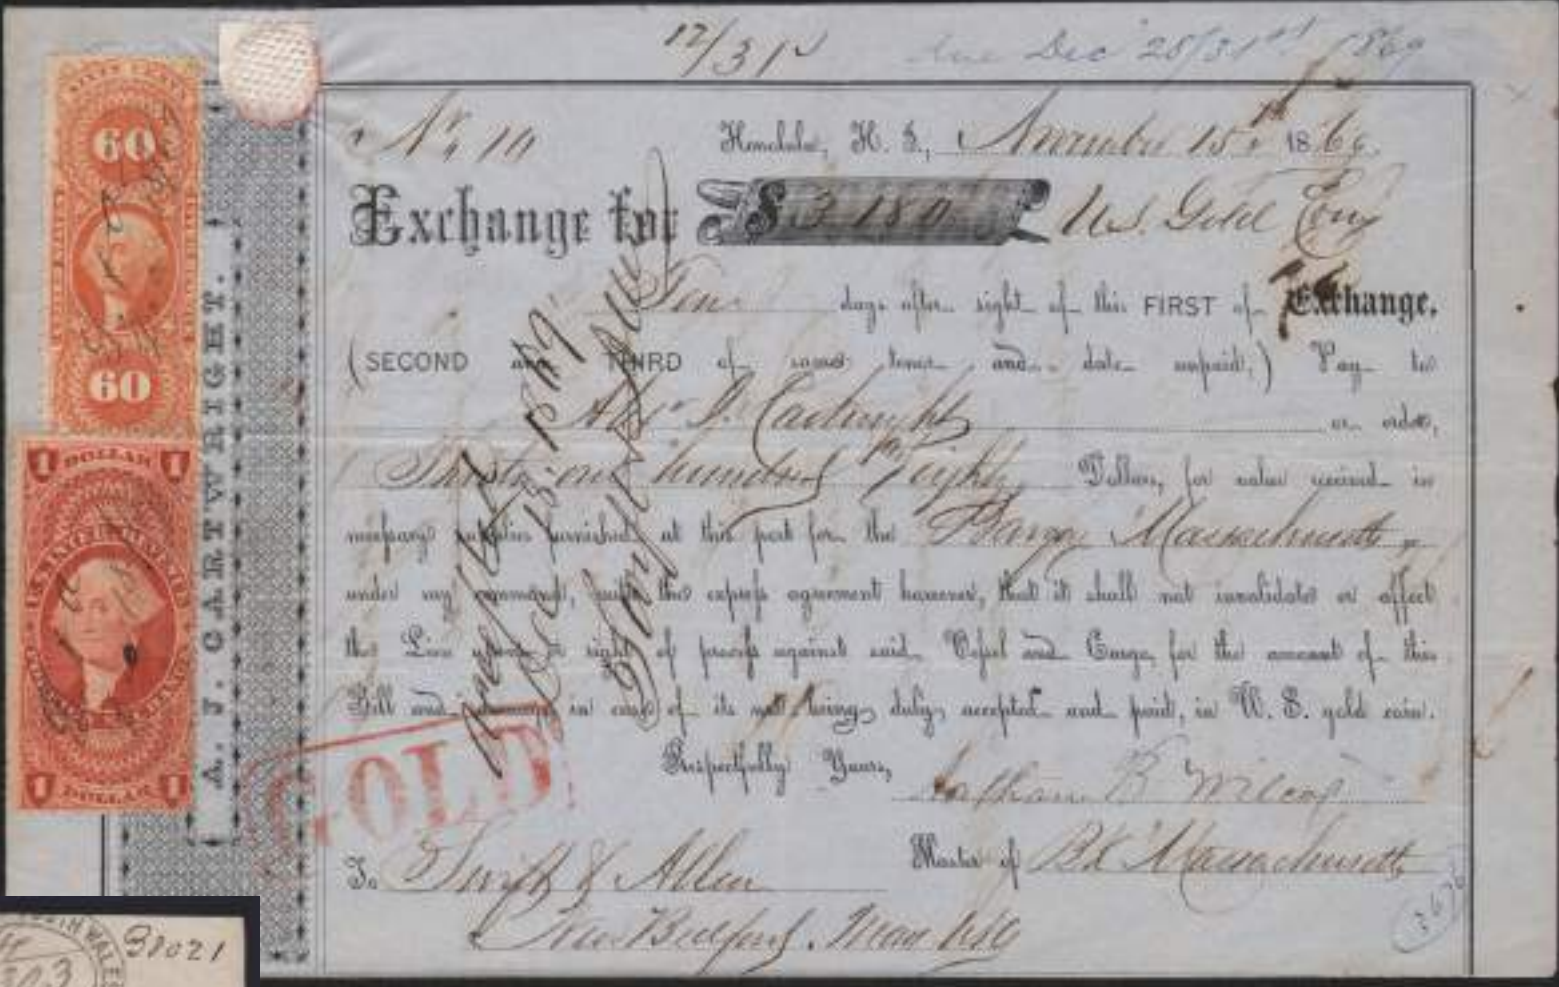 12/31
Due Dec 28/31st 1869
No. 10 Honolulu, H. I., November 15th 1869
Exchange for $3,180 U.S. Gold Coin
Ten days after sight of this FIRST of Exchange.
(SECOND and THIRD of same tenor and date unpaid,) Pay to
Alexr J. Cartwright or order,
Thirty-one hundred & Eighty Dollars, for value received in
necessary supplies furnished at this port for the Barque Massachusetts
under my command, with the express agreement however, that it shall not invalidate or affect
the Lien upon or right of process against said Vessel and Cargo, for the amount of this
Bill and damage in case of its not being duly accepted and paid, in U. S. gold coin.
Respectfully Yours,
Nathan B Wilcox
Master of Bk Massachusetts
To Swift & Allen
New Bedford. Mass
Accepted
Dec 18 1869
Swift & Allen
GOLD
A. J. CARTWRIGHT.
60
60
1 DOLLAR 1
1 DOLLAR 1
3676
38021